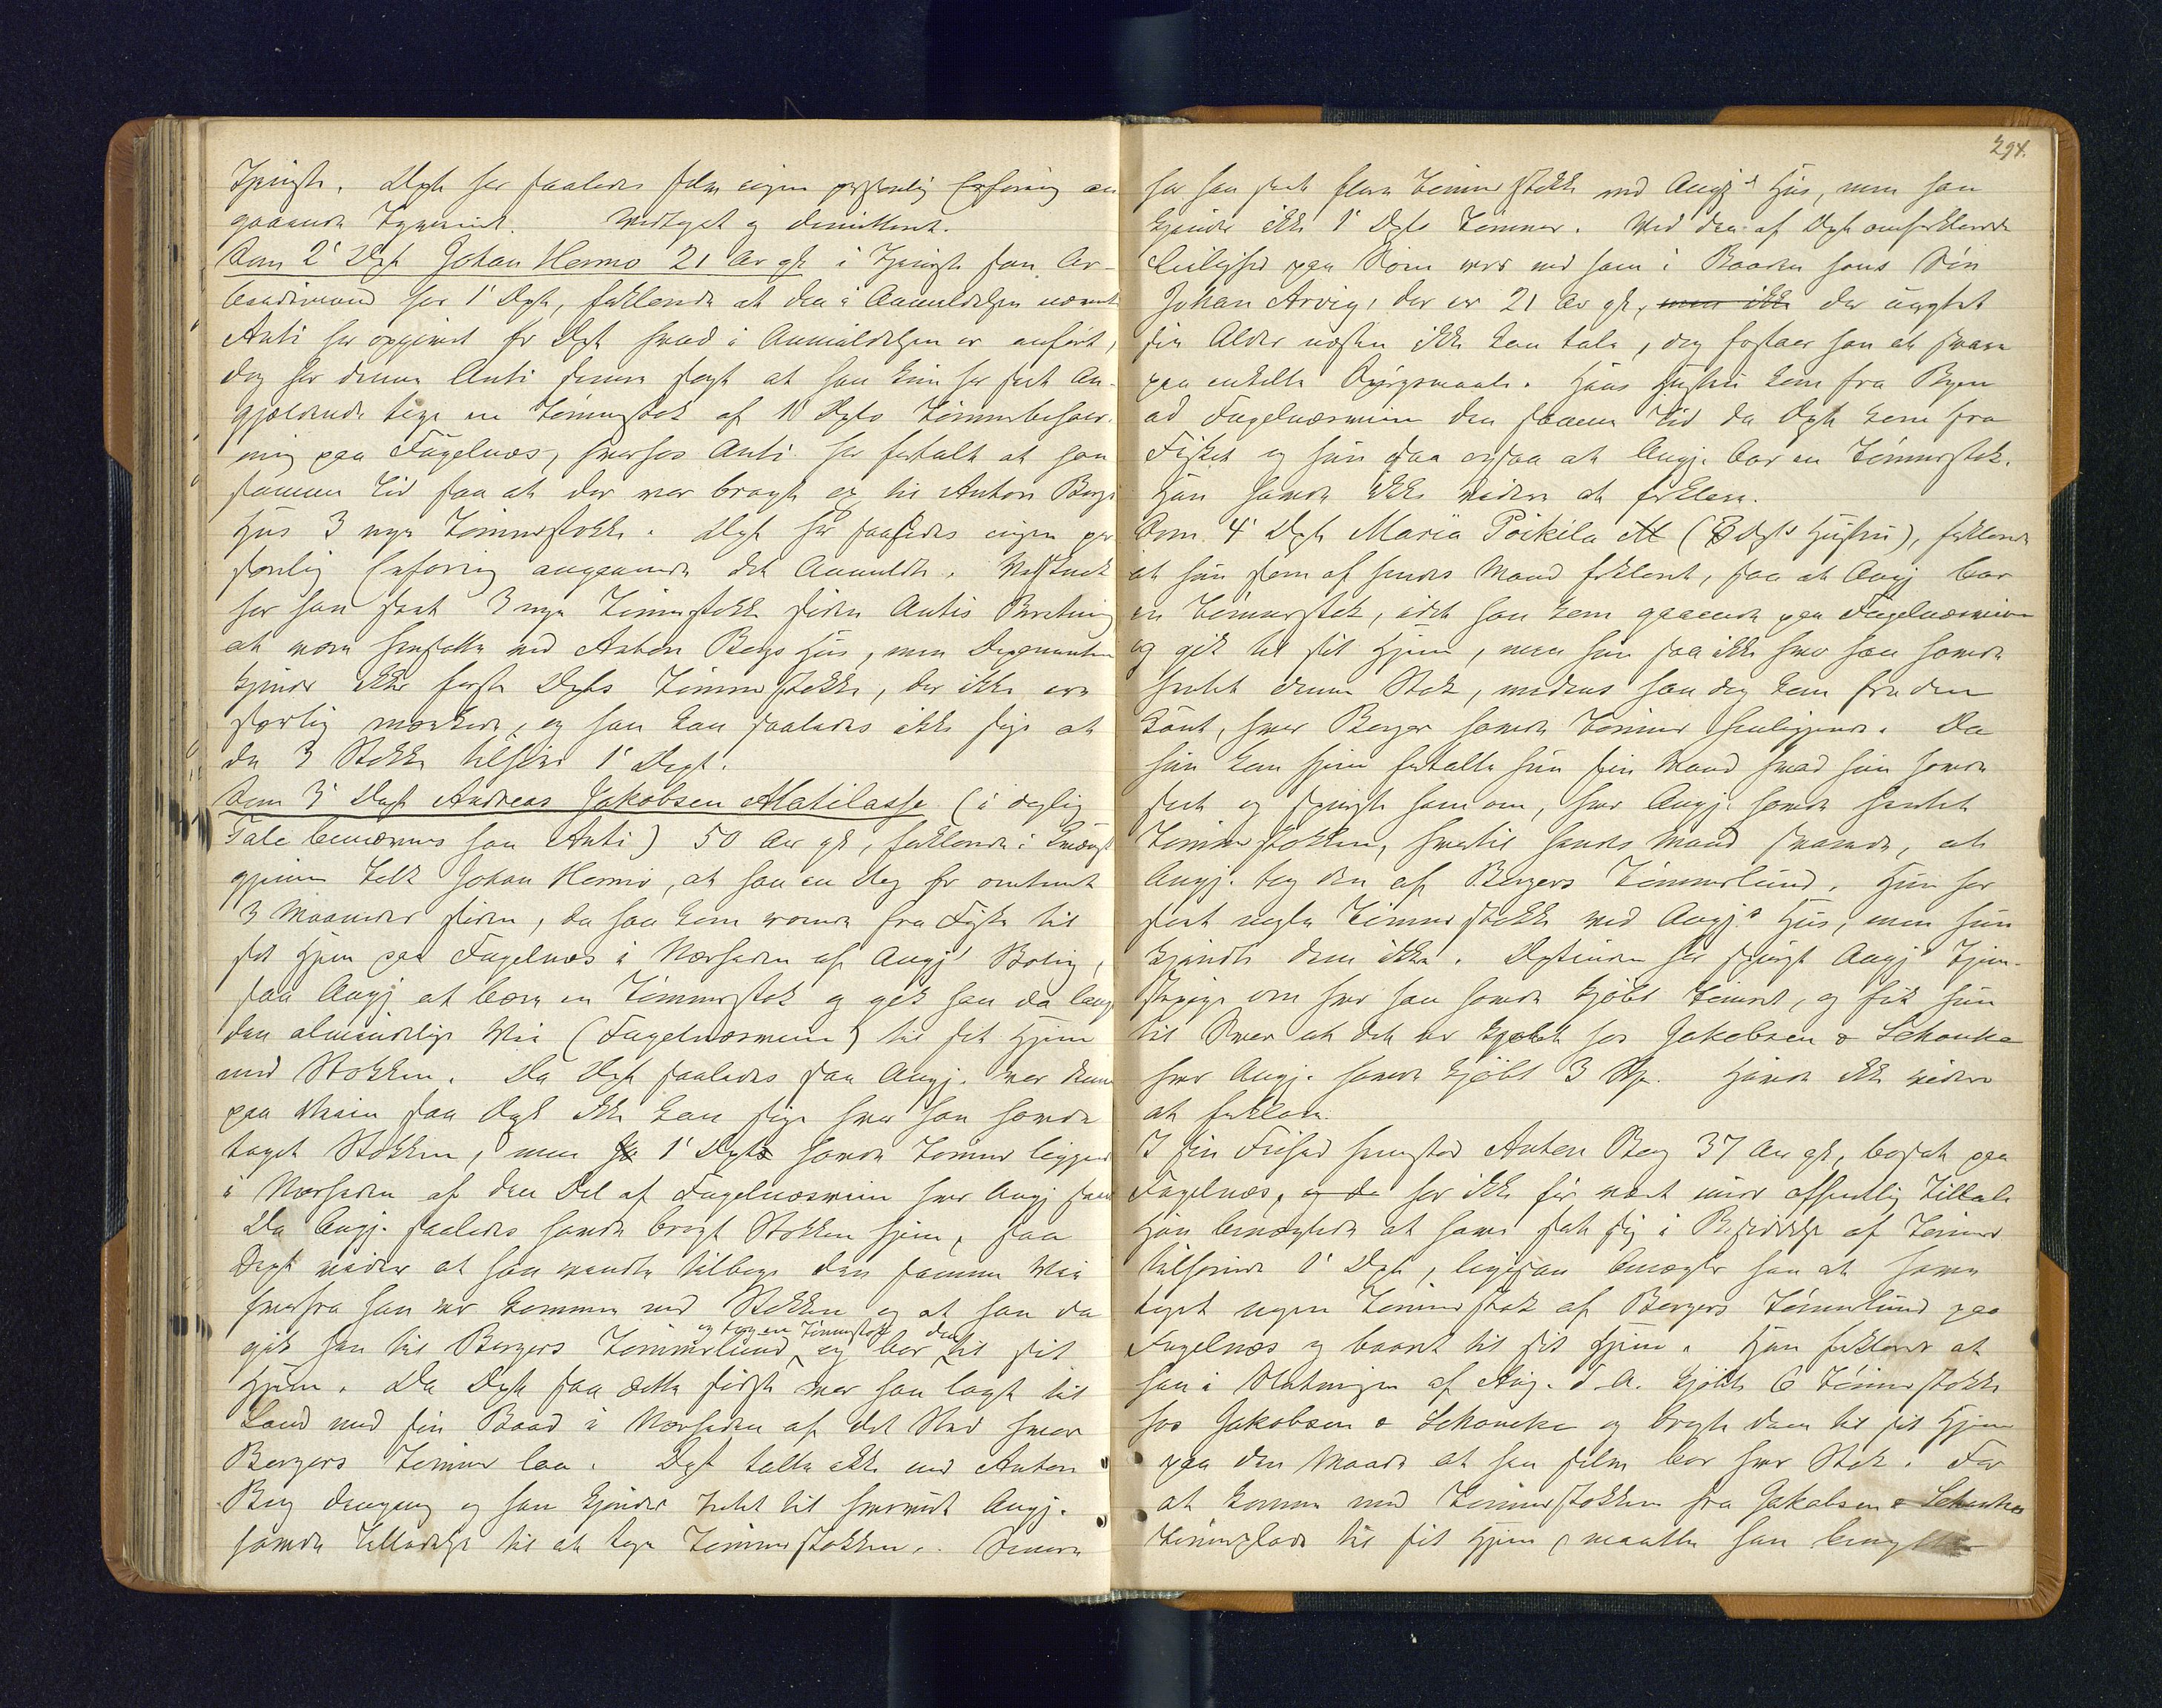 Tjeneste. Dept har saaledes selv ingen personlig Erfaring an-
gaaende Tyveriet. Vedtaget og demitteret.
Som 2' Dept Johan Hermo 21 Aar gl. i Tjeneste som Ar-
beidsmand hos 1' Dept, forklarede at den i Anmeldelsen nævnte
Anti har opgivet for Dept hvad i Anmeldelsen er anført,
dog har denne Anti senere sagt at han kun har seet An-
gjældende tage en Tømmerstok af 1' Depts Tømmerbehold-
ning paa Fagelnæs, hvorhos Anti har fortalt at han
samme Tid saa at der var bragt op til Anton Bergs
Hus 3 nye Tømmerstokke. Dept har saaledes ingen per-
sonlig Erfaring angaaende det Anmeldte. Vistnok
har han seet 3 nye Tømmerstokke siden Antis Beretning
at være hensatte ved Anton Bergs Hus, men Deponenten
kjender ikke første Depts Tømmerstokke, der ikke ere
særlig mærkede, og han kan saaledes ikke sige at
de 3 Stokke tilhører 1' Dept.
Som 3' Dept Andreas Jakobsen Matilasse (i daglig
Tale benævnes han Anti) 50 Aar gl, forklarede i Kvænsk
gjennem Tolk Johan Hermo, at han en Dag for omtrent
3 Maaneder siden, da han kom roende fra Fiske til
sit Hjem paa Fagelnæs i Nærheden af Angj's Bolig,
saa Angj at bære en Tømmerstok og gik han da langs
den almindelige Vei (Fagelnæsveien) til sit Hjem
med Stokken. Da Dept saaledes saa Angj. var denne
paa Veien saa Dept ikke kan sige hvor han havde
taget Stokken, men 1' Dept havde Tømmer liggende
i Nærheden af den Del af Fagelnæsveien hvor Angj saaes
Da Angj. saaledes havde bragt Stokken hjem, saa
Dept videre at han vendte tilbage den samme Vei
hvorfra han var kommen med Stokken og at han da
og tog en Tømmerstok den
gik hen til Bergers Tømmerlund og bar til sit
Hjem. Da Dept saa dette sidste var han lagt til
Land med sin Baad i Nærheden af det Sted hvor
Bergers Tømmer laa. Dept talte ikke med Anton
Berg dengang og han kjender Intet til hvorvidt Angj.
havde Tilladelse til at tage Tømmerstokken. Senere
294.
har han seet flere Tømmerstokke ved Angj's Hus, men han
kjender ikke 1' Depts Tømmer. Ved den af Dept omforklarede
Leilighed paa Søen var med ham i Baaden hans Søn
Johan Arvig, der er 21 Aar gl, men ikke der uagtet
sin Alder næsten ikke kan tale, dog forstaar han at svare
paa enkelte Spørgsmaal. Hans Hustru kom fra Byen
ad Fagelnæsveien den samme Tid da Dept kom fra
Fisket og hun saa ogsaa at Angj. bar en Tømmerstok.
Han havde ikke videre at forklare.
Som 4' Dept Maria Poikila (3 dept's Hustru), forklarede
at hun som af hendes Mand forklaret, saa at Angj bar
en Tømmerstok, idet han kom gaaende paa Fagelnæsveien
og gik til sit Hjem, men hun saa ikke hvor han havde
hentet denne Stok, medens han dog kom fra den
Kant, hvor Berger havde Tømmer henliggende. Da
hun kom hjem fortalte hun sin Mand hvad hun havde
seet og spurgte ham om, hvor Angj. havde hentet
Tømmerstokken, hvortil hendes Mand svarede, at
Angj. tog den af Bergers Tømmerlund. Hun har
seet nogle Tømmerstokke ved Angj's Hus, men hun
kjendte dem ikke. Deptinden har spurgt Angj's Tjene-
stepige om hvor han havde kjøbt Tømret, og fik hun
til Svar at det var kjøbt hos Jakobsen & Schanche
hvor Angj. havde kjøbt 3 Stk. Havde ikke videre
at forklare.
I sin Frihed fremstod Anton Berg 37 Aar gl, bosat paa
Fagelnæs, og da har ikke før været under offentlig Tiltale
Han benægtede at have sat sig i Besiddelse af Tømmer
tilhørende 1' Dept, ligesaa benægter han at have
taget nogen Tømmerstok af Bergers Tømmerlund paa
Fagelnæs og baaret til sit Hjem. Han forklarer at
han i Slutningen af Aug. d. A. kjøbte 6 Tømmerstokke
hos Jakobsen & Schancke og bragte dem til sit Hjem
paa den Maade at han selv bar hver Stok. For
at komme med Tømmerstokken fra Jakobsen & Schanches
Tømmerplads til sit Hjem maatte han benytte